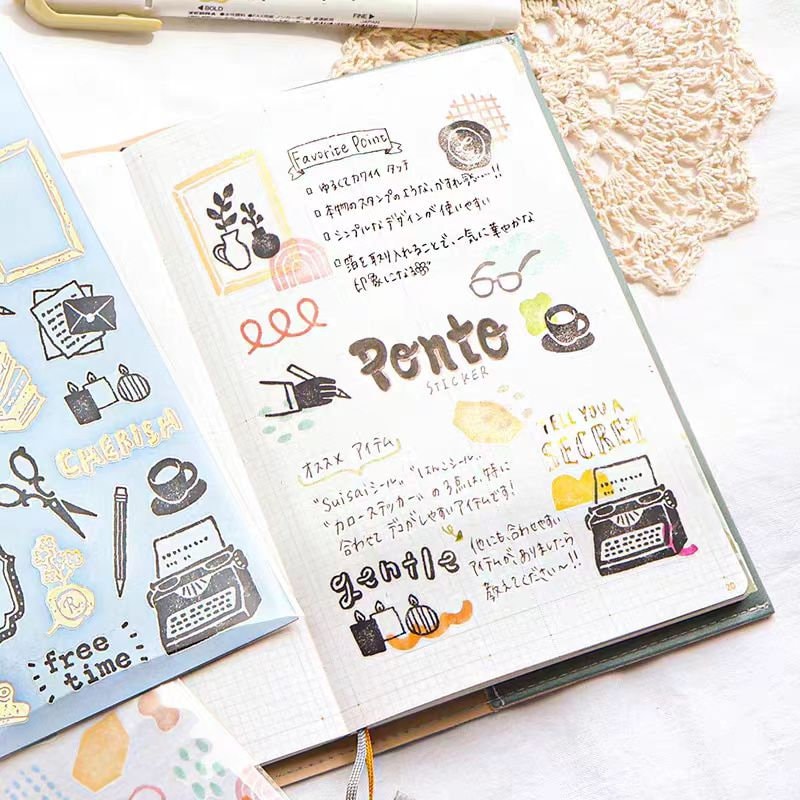 ◀BOLD
ZEBRA
FINE▶
JAPAN
Favorite Point
ゆるくてカワイイ タッチ
本物のスタンプのような、かすれ感……!!
シンプルなデザインが使いやすい
箔を取り入れることで、一気に華やかな
印象になる
Ponto
STICKER
CHERISH
TELL YOU A
SECRET
オススメ アイテム
"Suisaiシール" "はんこシール"
"カローステッカー" の3点は、特に
合わせて デコがしやすいアイテムです!
gentle
他にも合わせやすい
アイテムがありましたら
教えてください〜!!
R
free
time
20